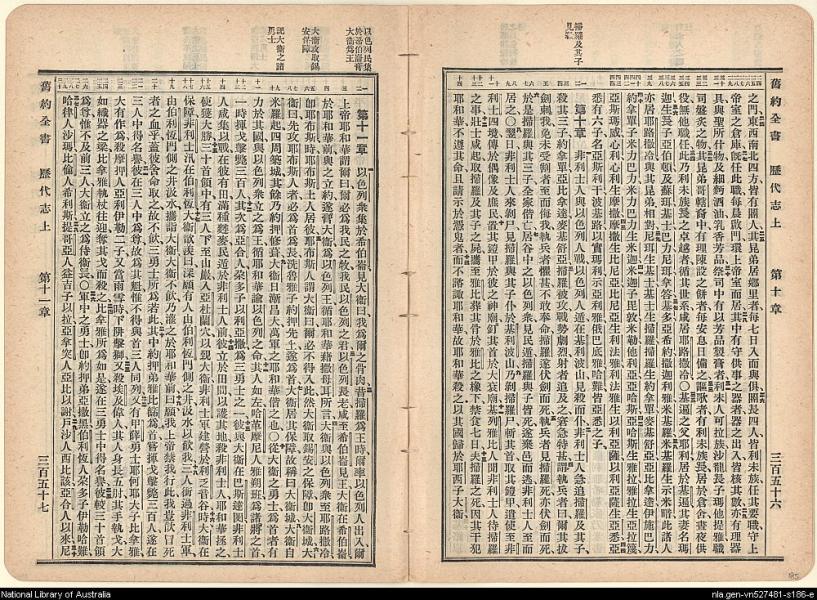 舊約全書 歷代志上 第十章 三百五十六
之門東西南北四方皆有閽人其昆弟居鄉里者每七日入而與俱閽長四人皆利未族任其要職守上
帝室之倉庫旣任此職每晨啟門環上帝室而居其中有守供事之器者器之出入皆核其數亦有理器
具與聖所什物及細麪酒油乳香芳品祭司中有以芳品製膏者利未人可拉族沙龍長子瑪他提雅職
司盤炙之物其昆弟哥轄裔中有理陳設之餅者每安息日備之謳歌者有利未族長居於倉舍晝夜供
役無他職任此乃利未族長之卓越者循其世系咸居耶路撒冷〇基遍之父耶利居於基遍其妻名瑪
迦生長子亞伯頓及蘇珥基士巴力尼珥拿答基多亞希約撒迦利雅米基羅米基羅生示米暗此諸人
亦居耶路撒冷與其昆弟相對尼珥生基士基士生掃羅掃羅生約拿單麥基舒亞亞比拿達伊施巴力
約拿單子米力巴力米力巴力生米迦米迦子毘敦米勒他利亞亞哈斯亞哈斯生雅拉雅拉生亞拉篾
亞斯瑪威心利心利生摩撒摩撒生比尼亞比尼亞生利法雅利法雅生以利亞薩以利亞薩生亞悉亞
悉有六子名亞斯利干波基路以實瑪利示亞利雅俄巴底雅哈難皆亞悉之子
掃羅及其子見殺
第十章 非利士人與以色列人戰以色列人遁在基利波山見殺而仆非利士人急追掃羅及其子
殺其三子約拿單亞比拿達麥基舒亞攻掃羅戰勢劇烈射者追及之窘急特甚謂執兵者曰爾其拔
劍刺我免未受割者至而侮我執兵者懼甚不敢奉命掃羅遂伏劍而死執兵者見掃羅死亦伏劍而死
掃羅與其三子全家偕亡居谷中之以色列衆見民遁掃羅與子皆死遂棄邑而逃非利士人至而
居之〇翌日非利士人來剝尸見掃羅與其子仆於基利波山乃剝掃羅尸斬其首取其鎧甲遣使至非
利士四境傳於偶像及庶民置其鎧甲於彼之神廟釘其首於大衮廟基列雅比人聞非利士人待掃羅
之事壯士咸起取掃羅與其子之屍攜至雅比葬其骨於雅比之橡下禁食七日夫掃羅之死因其干犯
耶和華不遵其命且請示於憑鬼者而不諮諏耶和華故耶和華殺之以其國歸於耶西子大衛
以色列民集於希伯崙膏大衛爲王
第十一章 以色列衆集於希伯崙見大衛曰我爲爾之骨肉昔掃羅爲王時爾率以色列人出入爾
上帝耶和華謂爾曰爾必爲我民之牧我民以色列之君以色列長老咸至希伯崙見王大衛在希伯崙
於耶和華前與之立約遂膏大衛爲以色列王循耶和華藉撒母耳所言大衛與以色列衆至耶路撒冷
大衛攻取錫安保障
卽耶布斯時耶布斯土人居彼耶布斯人謂大衛曰爾必不得入此然大衛取錫安之保障卽大衛城大
衛曰先攻耶布斯人者必爲首爲長洗魯雅子約押先上遂爲首大衛居其保障故稱曰大衛城大衛自
米羅起四周築城其餘乃約押修葺大衛日漸昌大萬軍之耶和華偕之也〇從大衛之勇士爲首者有
述大衛之諸勇士
力於其國與以色列衆立之爲王循耶和華諭以色列之命其人如左哈革摩尼人雅朔班爲諸將之首
一時揮戈擊斃三百人其次爲亞合人朵多子以利亞撒爲三勇士之一彼與大衛在巴斯達閔非利士
人咸集以戰在彼有田滿種麰麥民遁於非利士人前彼立於田間以護其地殺非利士人耶和華拯之
使獲大勝三十首領中有三人下至山巖入亞杜蘭穴以覲大衛非利士軍建營於利乏音谷時大衛在
保障非利士汛在伯利恆大衛歎羨曰深願有人由伯利恆門側之井汲水以飲我三人衝過非利士軍
由伯利恆門側之井汲水攜詣大衛大衛不欲飲乃奠之於耶和華前曰願我上帝禁我行此我豈以冒死
者之血乎蓋彼舍命取之故不欲飲三勇士所爲若此其中約押弟亞比篩爲首嘗揮戈擊斃三百人遂在
三人中得名譽彼在三人中爲尊故爲其魁惟不得與首三人同列又有甲薛勇士耶何耶大子比拿雅
大有作爲殺摩押人亞利伊勒二子又當雨雪時下阱擊獅又殺埃及偉人其人身長五肘其手執戈大
如織器之梁比拿雅執杖往迎奪其戈而殺之比拿雅所爲如是遂在三勇士中得名譽彼較三十首領
爲尊惟不及前三人大衛立之爲侍衛長〇軍中之勇士卽約押弟亞撒黑伯利恆人朵多子伊勒哈難
哈律人沙瑪比倫人希利斯提哥亞人益吉子以拉亞拿突人亞比以謝戶沙人西比該亞合人以來尼
舊約全書 歷代志上 第十一章 三百五十七
National Library of Australia
nla.gen-vn527481-s186-e